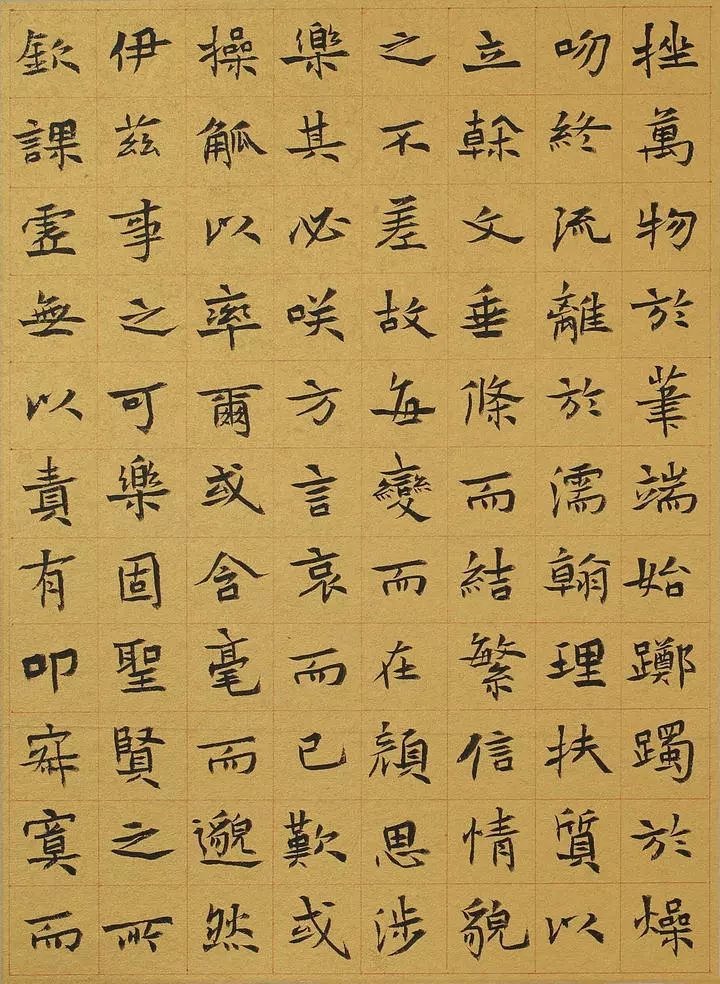 挫萬物於筆端始躑躅於燥
吻終流離於濡翰理扶質以
立榦文垂條而結繁信情貌
之不差故每變而在顔思涉
樂其必咲方言哀而已歎或
操觚以率爾或含毫而邈然
伊茲事之可樂固聖賢之所
欽課虛無以責有叩寂寞而